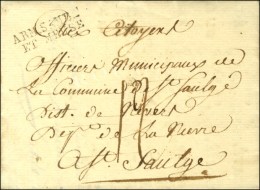 ARM.
ET
Citoyens
Officiers Municipaux de
La Commune de St. Saulge
Dist. de Nevers
Dep. de La Nievre
A St. Saulge